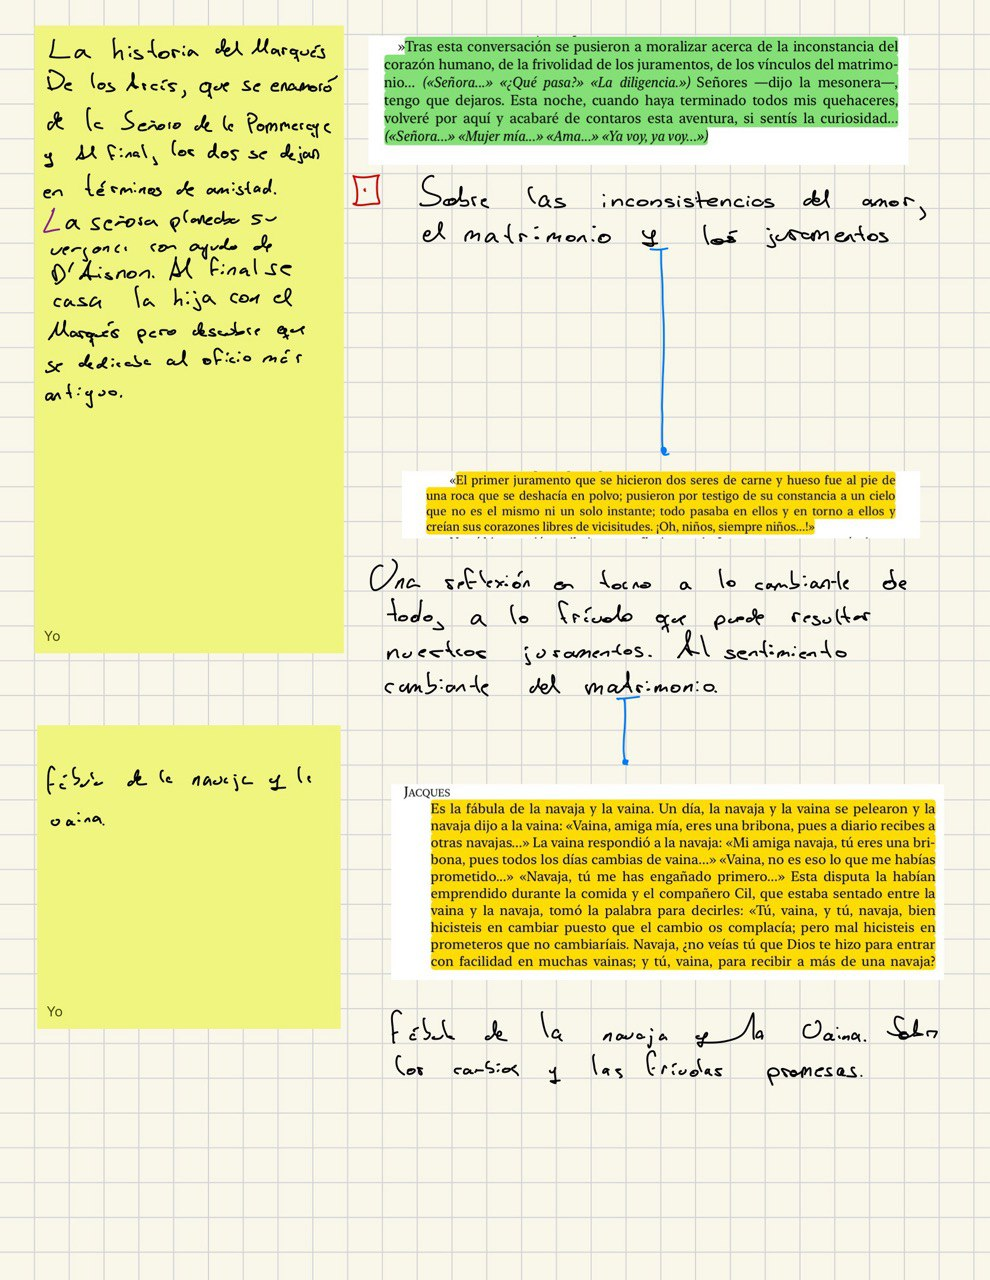 La historia del Marqués
De los Arcis, que se enamoró
de la Señora de la Pommeraye
y Al final, los dos se dejan
en términos de amistad.
La señora planeaba su
venganza con ayuda de
D'Aisnon. Al final se
casa la hija con el
Marqués pero descubre que
se dedicaba al oficio más
antiguo.
Yo
»Tras esta conversación se pusieron a moralizar acerca de la inconstancia del
corazón humano, de la frivolidad de los juramentos, de los vínculos del matrimo-
nio... («Señora...» «¿Qué pasa?» «La diligencia.») Señores —dijo la mesonera—,
tengo que dejaros. Esta noche, cuando haya terminado todos mis quehaceres,
volveré por aquí y acabaré de contaros esta aventura, si sentís la curiosidad...
(«Señora...» «Mujer mía...» «Ama...» «Ya voy, ya voy...»)
Sobre las inconsistencias del amor,
el matrimonio y los juramentos
«El primer juramento que se hicieron dos seres de carne y hueso fue al pie de
una roca que se deshacía en polvo; pusieron por testigo de su constancia a un cielo
que no es el mismo ni un solo instante; todo pasaba en ellos y en torno a ellos y
creían sus corazones libres de vicisitudes. ¡Oh, niños, siempre niños...!»
Una reflexión en torno a lo cambiante de
todo, a lo frívolo que puede resultar
nuestros juramentos. Al sentimiento
cambiante del matrimonio.
fábula de la navaja y la
vaina.
Yo
JACQUES
Es la fábula de la navaja y la vaina. Un día, la navaja y la vaina se pelearon y la
navaja dijo a la vaina: «Vaina, amiga mía, eres una bribona, pues a diario recibes a
otras navajas...» La vaina respondió a la navaja: «Mi amiga navaja, tú eres una bri-
bona, pues todos los días cambias de vaina...» «Vaina, no es eso lo que me habías
prometido...» «Navaja, tú me has engañado primero...» Esta disputa la habían
emprendido durante la comida y el compañero Cil, que estaba sentado entre la
vaina y la navaja, tomó la palabra para decirles: «Tú, vaina, y tú, navaja, bien
hicisteis en cambiar puesto que el cambio os complacía; pero mal hicisteis en
prometeros que no cambiaríais. Navaja, ¿no veías tú que Dios te hizo para entrar
con facilidad en muchas vainas; y tú, vaina, para recibir a más de una navaja?
Fábula de la navaja y la Vaina. Sobre
los cambios y las frívolas promesas.